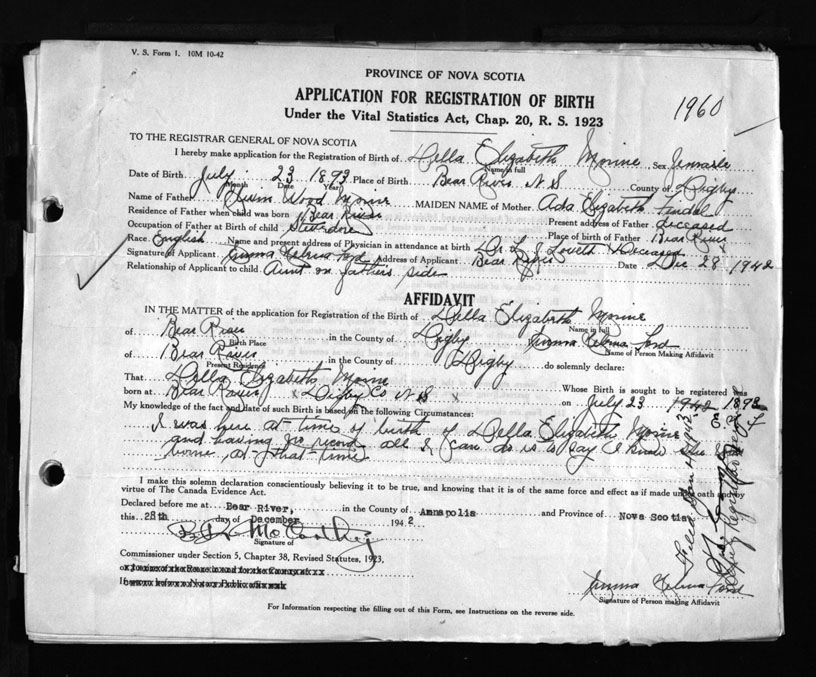 V. S. Form 1. 10M 10-42
PROVINCE OF NOVA SCOTIA
1960
APPLICATION FOR REGISTRATION OF BIRTH
Under the Vital Statistics Act, Chap. 20, R. S. 1923
TO THE REGISTRAR GENERAL OF NOVA SCOTIA
I hereby make application for the Registration of Birth of Della Elizabeth Morine Sex
Name in full
Date of Birth July 23 1893 Place of Birth Bear River N S County of Digby
Month Date Year
Name of Father Wood Morine MAIDEN NAME of Mother Ada Elizabeth
Residence of Father when child was born Bear River Present address of Father deceased
Occupation of Father at Birth of child Place of birth of Father Bear River
Race English Name and present address of Physician in attendance at birth Dr L J Lovett Deceased
Signature of Applicant Address of Applicant Bear River Date Dec 28 1942
Relationship of Applicant to child Aunt on fathers side
AFFIDAVIT
IN THE MATTER of the application for Registration of the Birth of Della Elizabeth Morine
Name in full
of Bear River in the County of Digby
Birth Place Name of Person Making Affidavit
of Bear River in the County of Digby do solemnly declare:
Present Residence
That Della Elizabeth Morine Whose Birth is sought to be registered was
born at Bear River Digby Co N S on July 23 1942 1893
My knowledge of the fact and date of such Birth is based on the following Circumstances:
I was here at time of birth of Della Elizabeth Morine
and having no record all I can do is to say I know she was
borne at that time
I make this solemn declaration conscientiously believing it to be true, and knowing that it is of the same force and effect as if made under oath and by
virtue of The Canada Evidence Act.
Declared before me at Bear River, in the County of Annapolis and Province of Nova Scotia
this 28th day of December 1942
Signature of
Commissioner under Section 5, Chapter 38, Revised Statutes, 1923,
Signature of Person making Affidavit
For Information respecting the filling out of this Form, see Instructions on the reverse side.